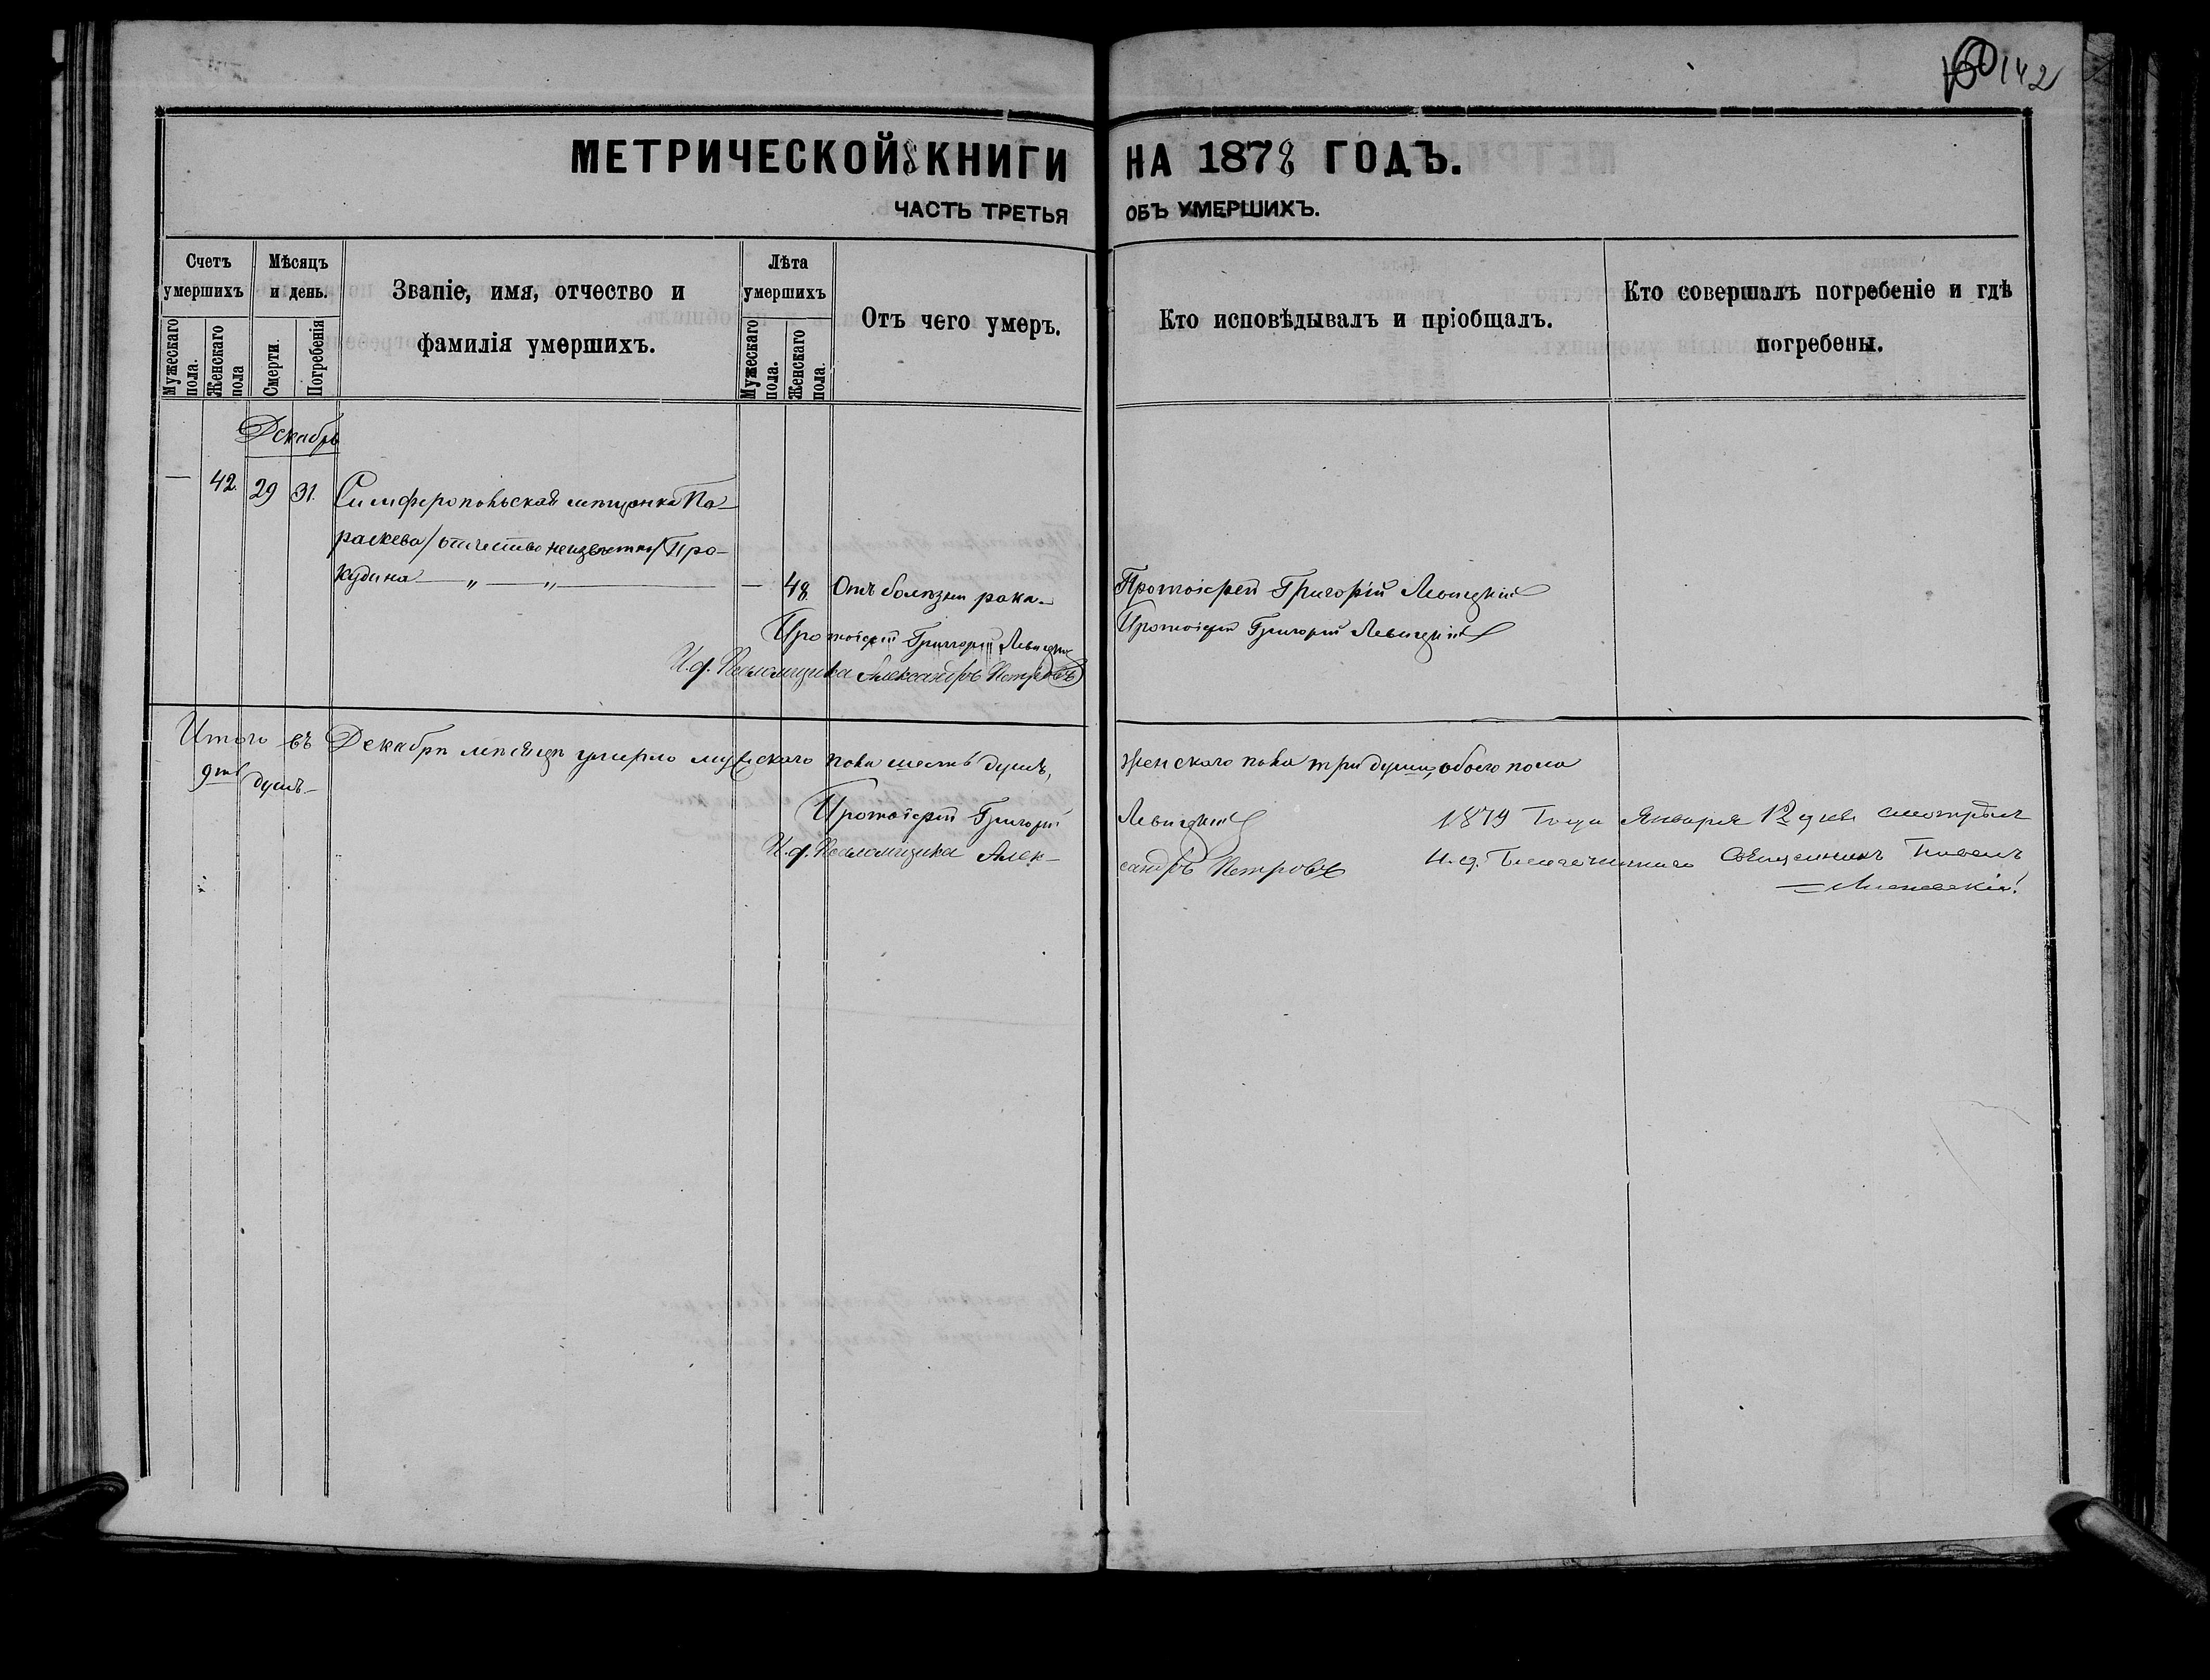 142
МЕТРИЧЕСКОЙ КНИГИ НА 1878 ГОДЪ.
ЧАСТЬ ТРЕТЬЯ ОБЪ УМЕРШИХЪ.
Счетъ умершихъ
Мужескаго пола.
Женскаго пола
Мѣсяцъ и день.
Смерти.
Погребенія
Званіе, имя, отчество и
фамилія умершихъ.
Лѣта умершихъ
Мужескаго пола.
Женскаго пола.
Отъ чего умеръ.
Кто исповѣдывалъ и пріобщалъ.
Кто совершалъ погребеніе и гдѣ
погребены.
Декабрь
— 42. 29 31. Симферопольская мѣщанка Па-
раскева /отчество неизвѣстно/ Про-
кудина — „ — „ — — 48. Отъ болѣзни рака. Протоіерей Григорій Левицкій
Протоіерей Григорій Левицкій Протоіерей Григорій Левицкій
И. д. Псаломщика Александръ Петровъ
Итого въ Декабрѣ мѣсяцѣ умерло мужскаго пола шесть душъ, женского пола три души, обоего пола
9ть душъ.
Протоіерей Григорій Левицкій 1879 Года Января 12 дня смотрѣлъ
И. д. Псаломщика Александръ Петровъ И. д. Благочиннаго Священникъ Павелъ